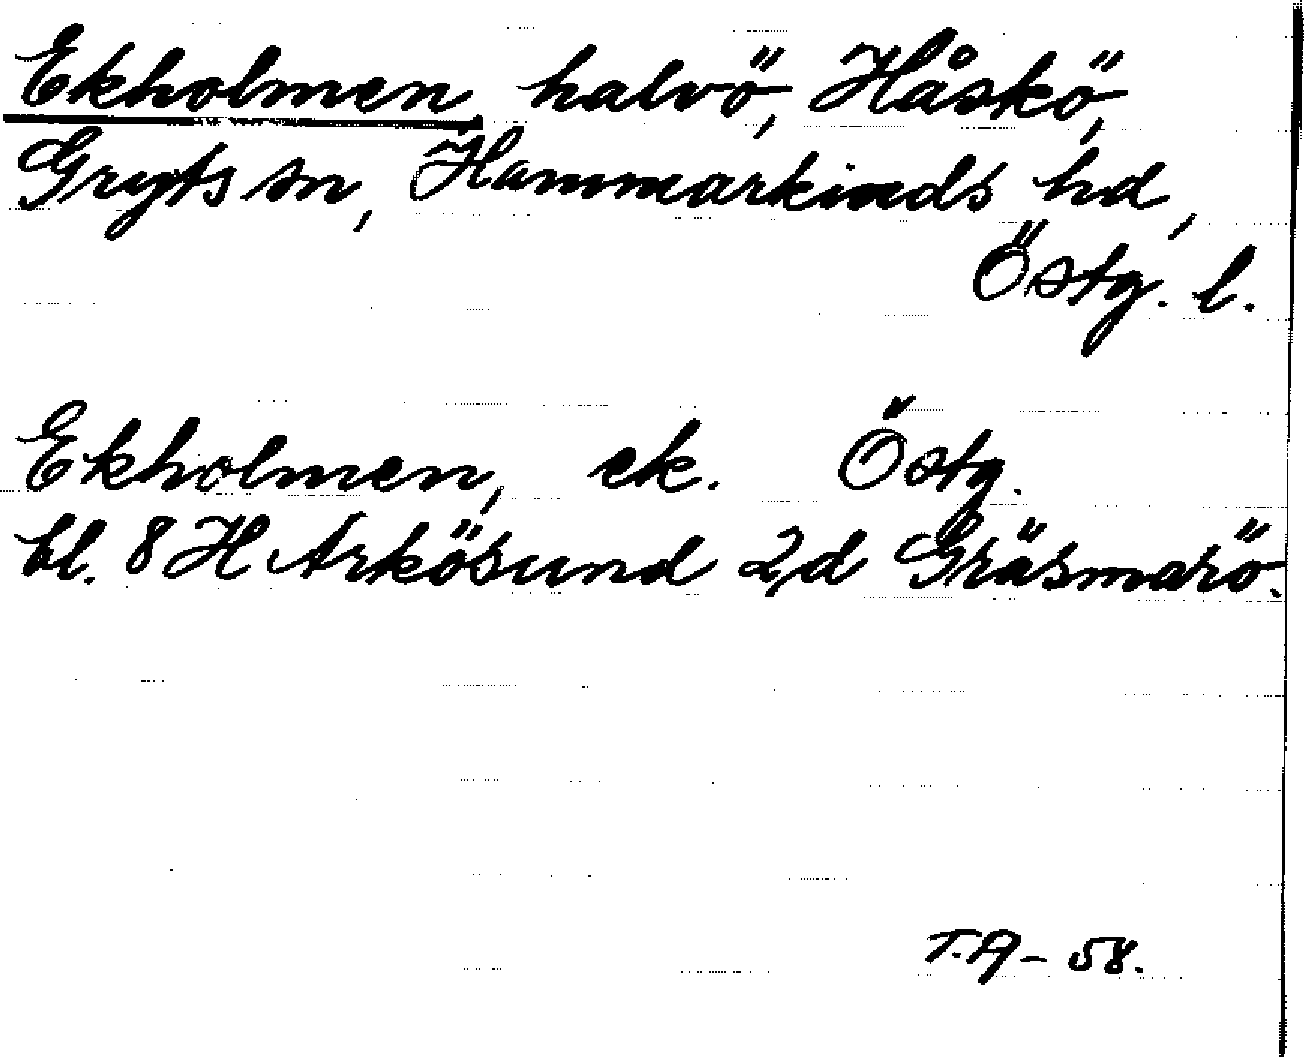 Ekholmen, halvö, Håskö,
Gryts sn, Hammarkinds hd,
Östg. l.
Ekholmen, ek. Östg.
bl. 8 H Arkösund 2,d Gräsmarö.
T.A - 58.